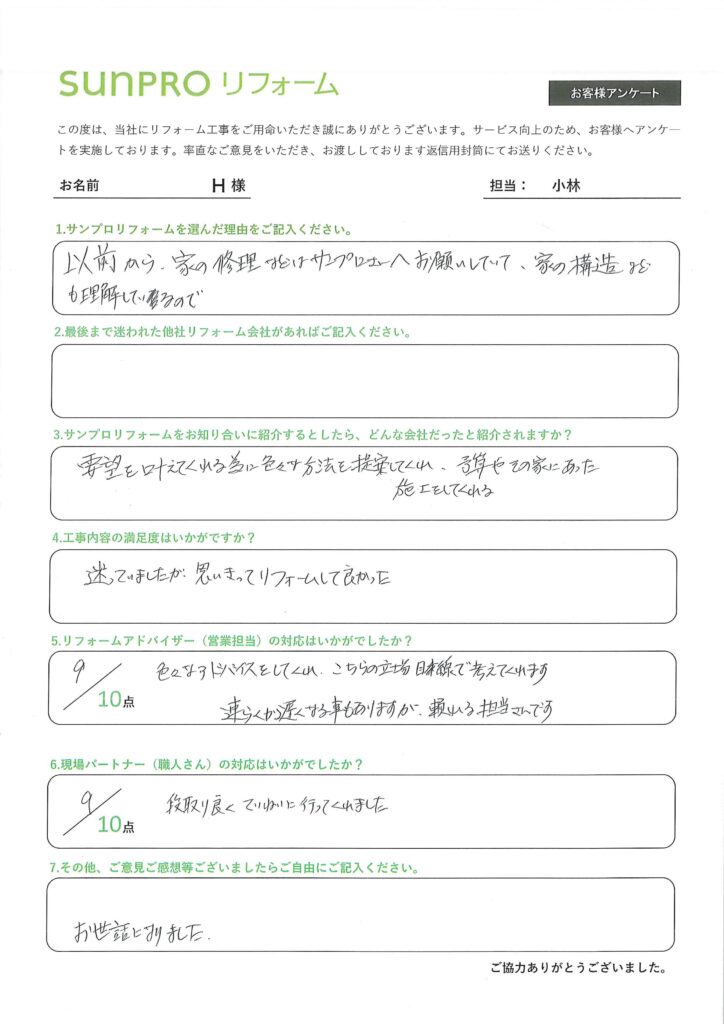 SunPRO リフォーム
お客様アンケート
この度は、当社にリフォーム工事をご用命いただき誠にありがとうございます。サービス向上のため、お客様へアンケー
トを実施しております。率直なご意見をいただき、お渡ししております返信用封筒にてお送りください。
お名前 H 様 担当： 小林
1.サンプロリフォームを選んだ理由をご記入ください。
以前から、家の修理などはサンプロさんへお願いしていて、家の構造など
も理解しているので
2.最後まで迷われた他社リフォーム会社があればご記入ください。
3.サンプロリフォームをお知り合いに紹介するとしたら、どんな会社だったと紹介されますか？
要望を叶えてくれる為に色々な方法を提案してくれ、予算やその家にあった
施工をしてくれる
4.工事内容の満足度はいかがですか？
迷っていましたが、思いきってリフォームして良かった
5.リフォームアドバイザー（営業担当）の対応はいかがでしたか？
9/10点 色々なアドバイスをしてくれ、こちらの立場目線で考えてくれます
連らくが遅くなる事もありますが、頼れる担当さんです
6.現場パートナー（職人さん）の対応はいかがでしたか？
9/10点 段取り良く ていねいに行ってくれました
7.その他、ご意見ご感想等ございましたらご自由にご記入ください。
お世話になりました.
ご協力ありがとうございました。